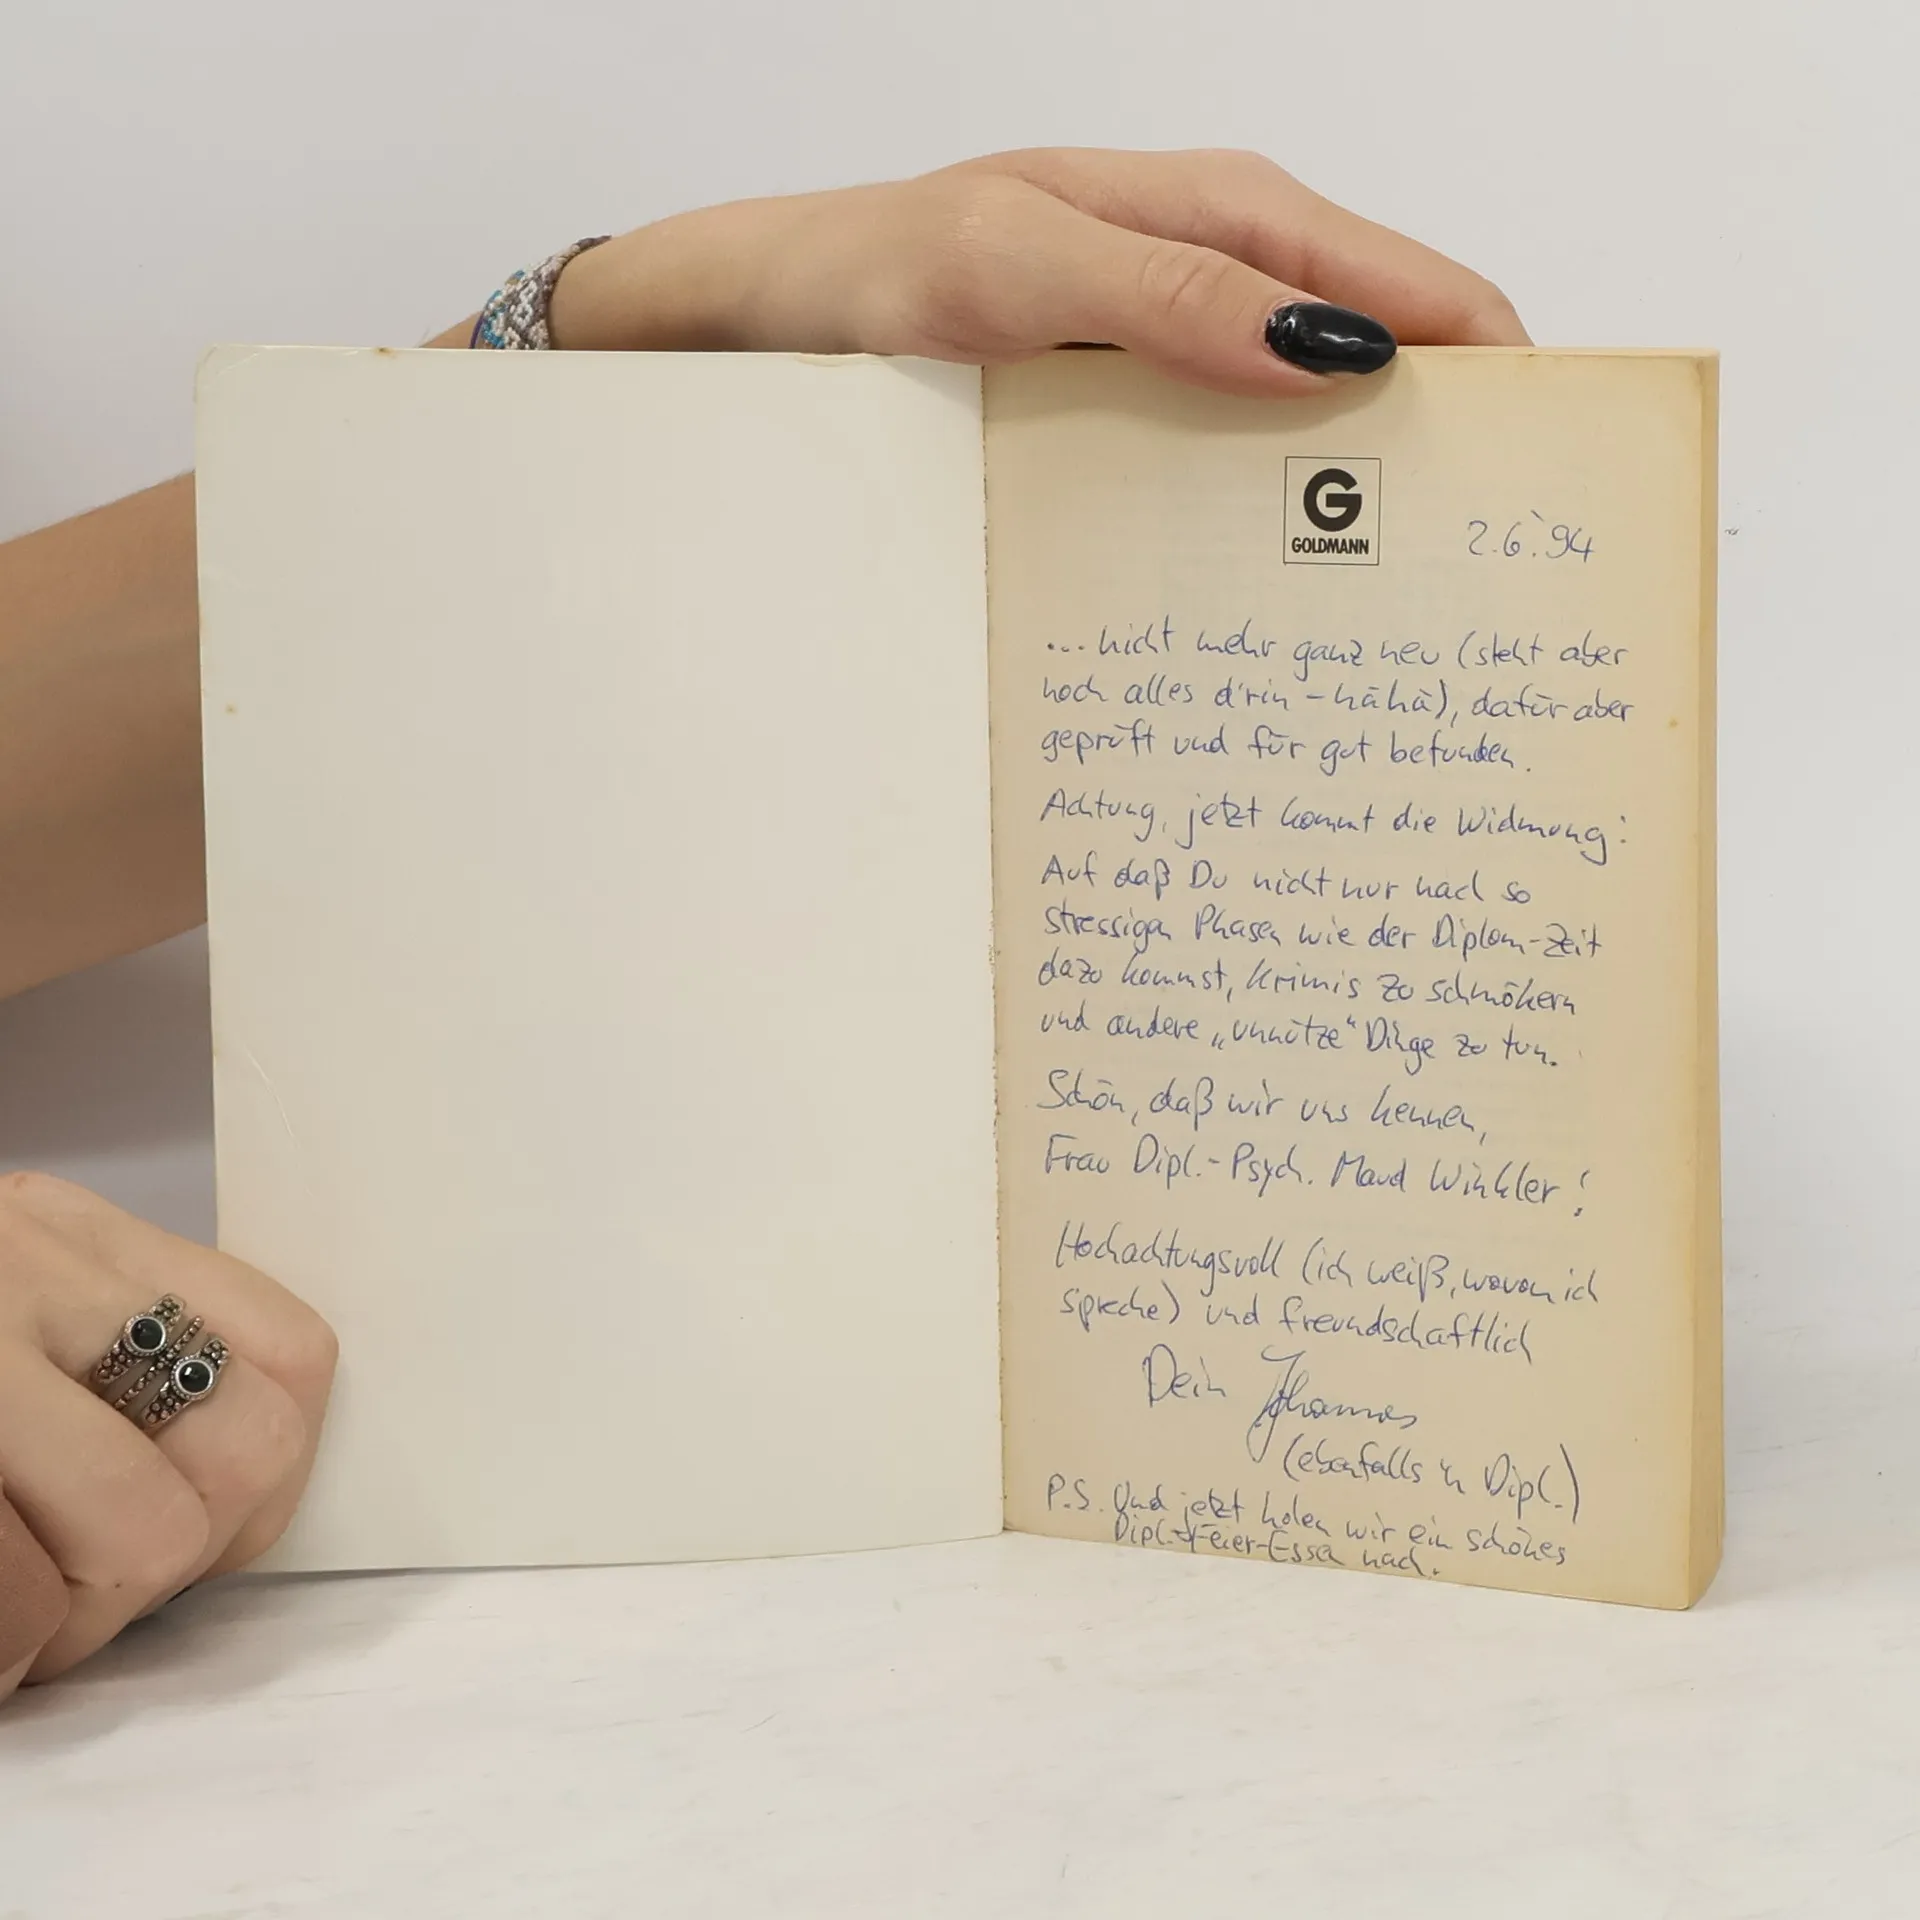 G
GOLDMANN
2.6.'94
... nicht mehr ganz neu (steht aber
noch alles d'rin - hähä), dafür aber
geprüft und für gut befunden.
Achtung, jetzt kommt die Widmung:
Auf daß Du nicht nur nach so
stressigen Phasen wie der Diplom-Zeit
dazu kommst, Krimis zu schmökern
und andere „unnütze“ Dinge zu tun.
Schön, daß wir uns kennen,
Frau Dipl.-Psych. Maud Winkler!
Hochachtungsvoll (ich weiß, wovon ich
spreche) und freundschaftlich
Dein Johannes
(ebenfalls 'n Dipl.)
P.S. Und jetzt holen wir ein schönes
Dipl.-Feier-Essen nach.